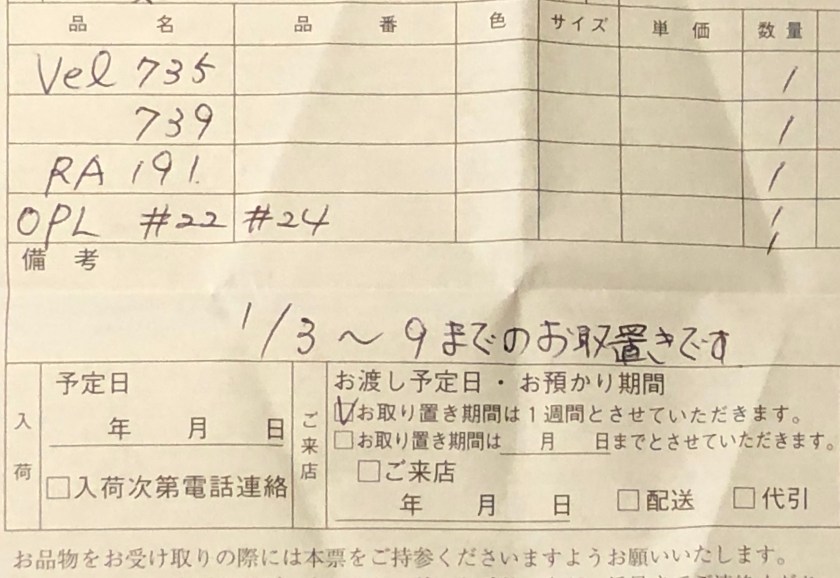 品 名 品 番 色 サイズ 単 価 数 量
Vel 735 1
739 1
RA 191. 1
OPL #22 #24 1
1
備 考
1/3 ~ 9までのお取置きです
入荷 予定日 ご来店 お渡し予定日・お預かり期間
年 月 日 お取り置き期間は1週間とさせていただきます。
お取り置き期間は 月 日までとさせていただきます。
入荷次第電話連絡 ご来店
年 月 日 配送 代引
お品物をお受け取りの際には本票をご持参くださいますようお願いいたします。